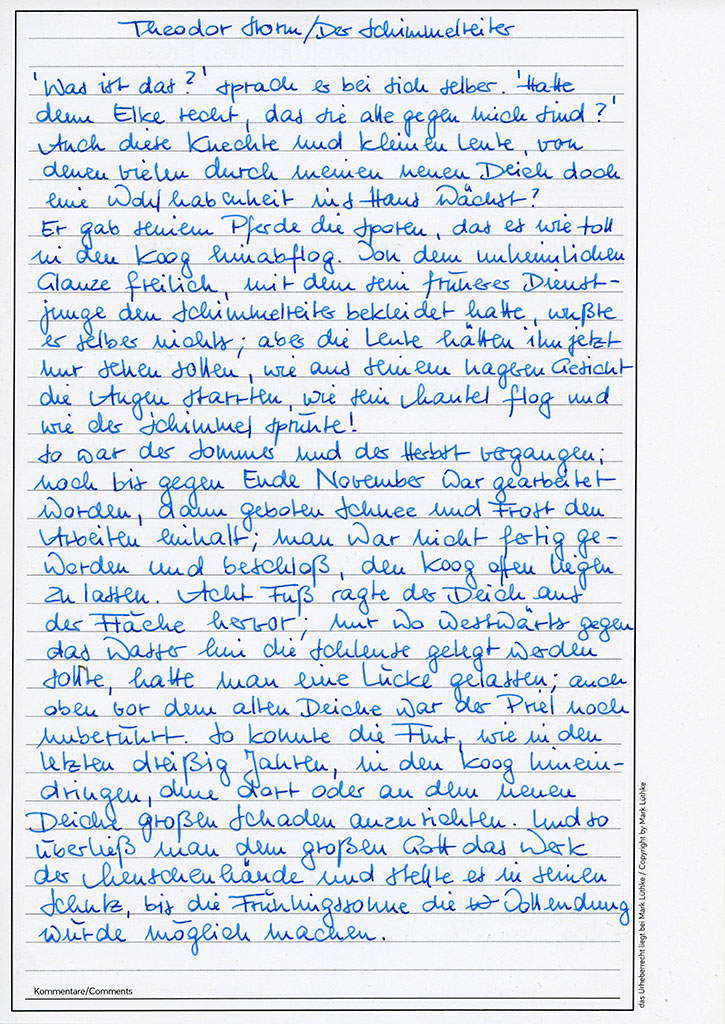 Theodor Storm/Der Schimmelreiter
'Was ist das?' sprach er bei sich selber. 'Hatte
denn Elke recht, das sie alle gegen mich sind?'
Auch diese Knechte und kleinen Leute, von
denen vielen durch meinen neuen Deich doch
eine Wohlhabenheit ins Haus wächst?
Er gab seinem Pferde die Sporen, das es wie toll
in den Koog hinabflog. Von dem unheimlichen
Glanze freilich, mit dem sein früherer Dienst-
junge den Schimmelreiter bekleidet hatte, wußte
er selber nichts; aber die Leute hätten ihn jetzt
nur sehen sollen, wie aus seinem hageren Gesicht
die Augen starrten, wie sein Mantel flog und
wie der Schimmel sprühte!
So war der Sommer und der Herbst vergangen;
noch bis gegen Ende November war gearbeitet
worden, dann geboten Schnee und Frost den
Arbeiten einhalt; man war nicht fertig ge-
worden und beschloß, den Koog offen liegen
zu lassen. Acht Fuß ragte der Deich aus
der Fläche hervor; nur wo westwärts gegen
das Wasser hin die Schleuse gelegt werden
sollte, hatte man eine Lücke gelassen; auch
oben vor dem alten Deiche war der Priel noch
unberührt. So konnte die Flut, wie in den
letzten dreißig Jahren, in den Koog hinein-
dringen, ohne dort oder an dem neuen
Deiche großen Schaden anzurichten. Und so
überließ man dem großen Gott das Werk
der Menschenhände und stellte es in seinen
Schutz, bis die Frühlingssonne die Vollendung
würde möglich machen.
Kommentare/Comments
das Urheberrecht liegt bei Mark Lüthke / Copyright by Mark Lüthke